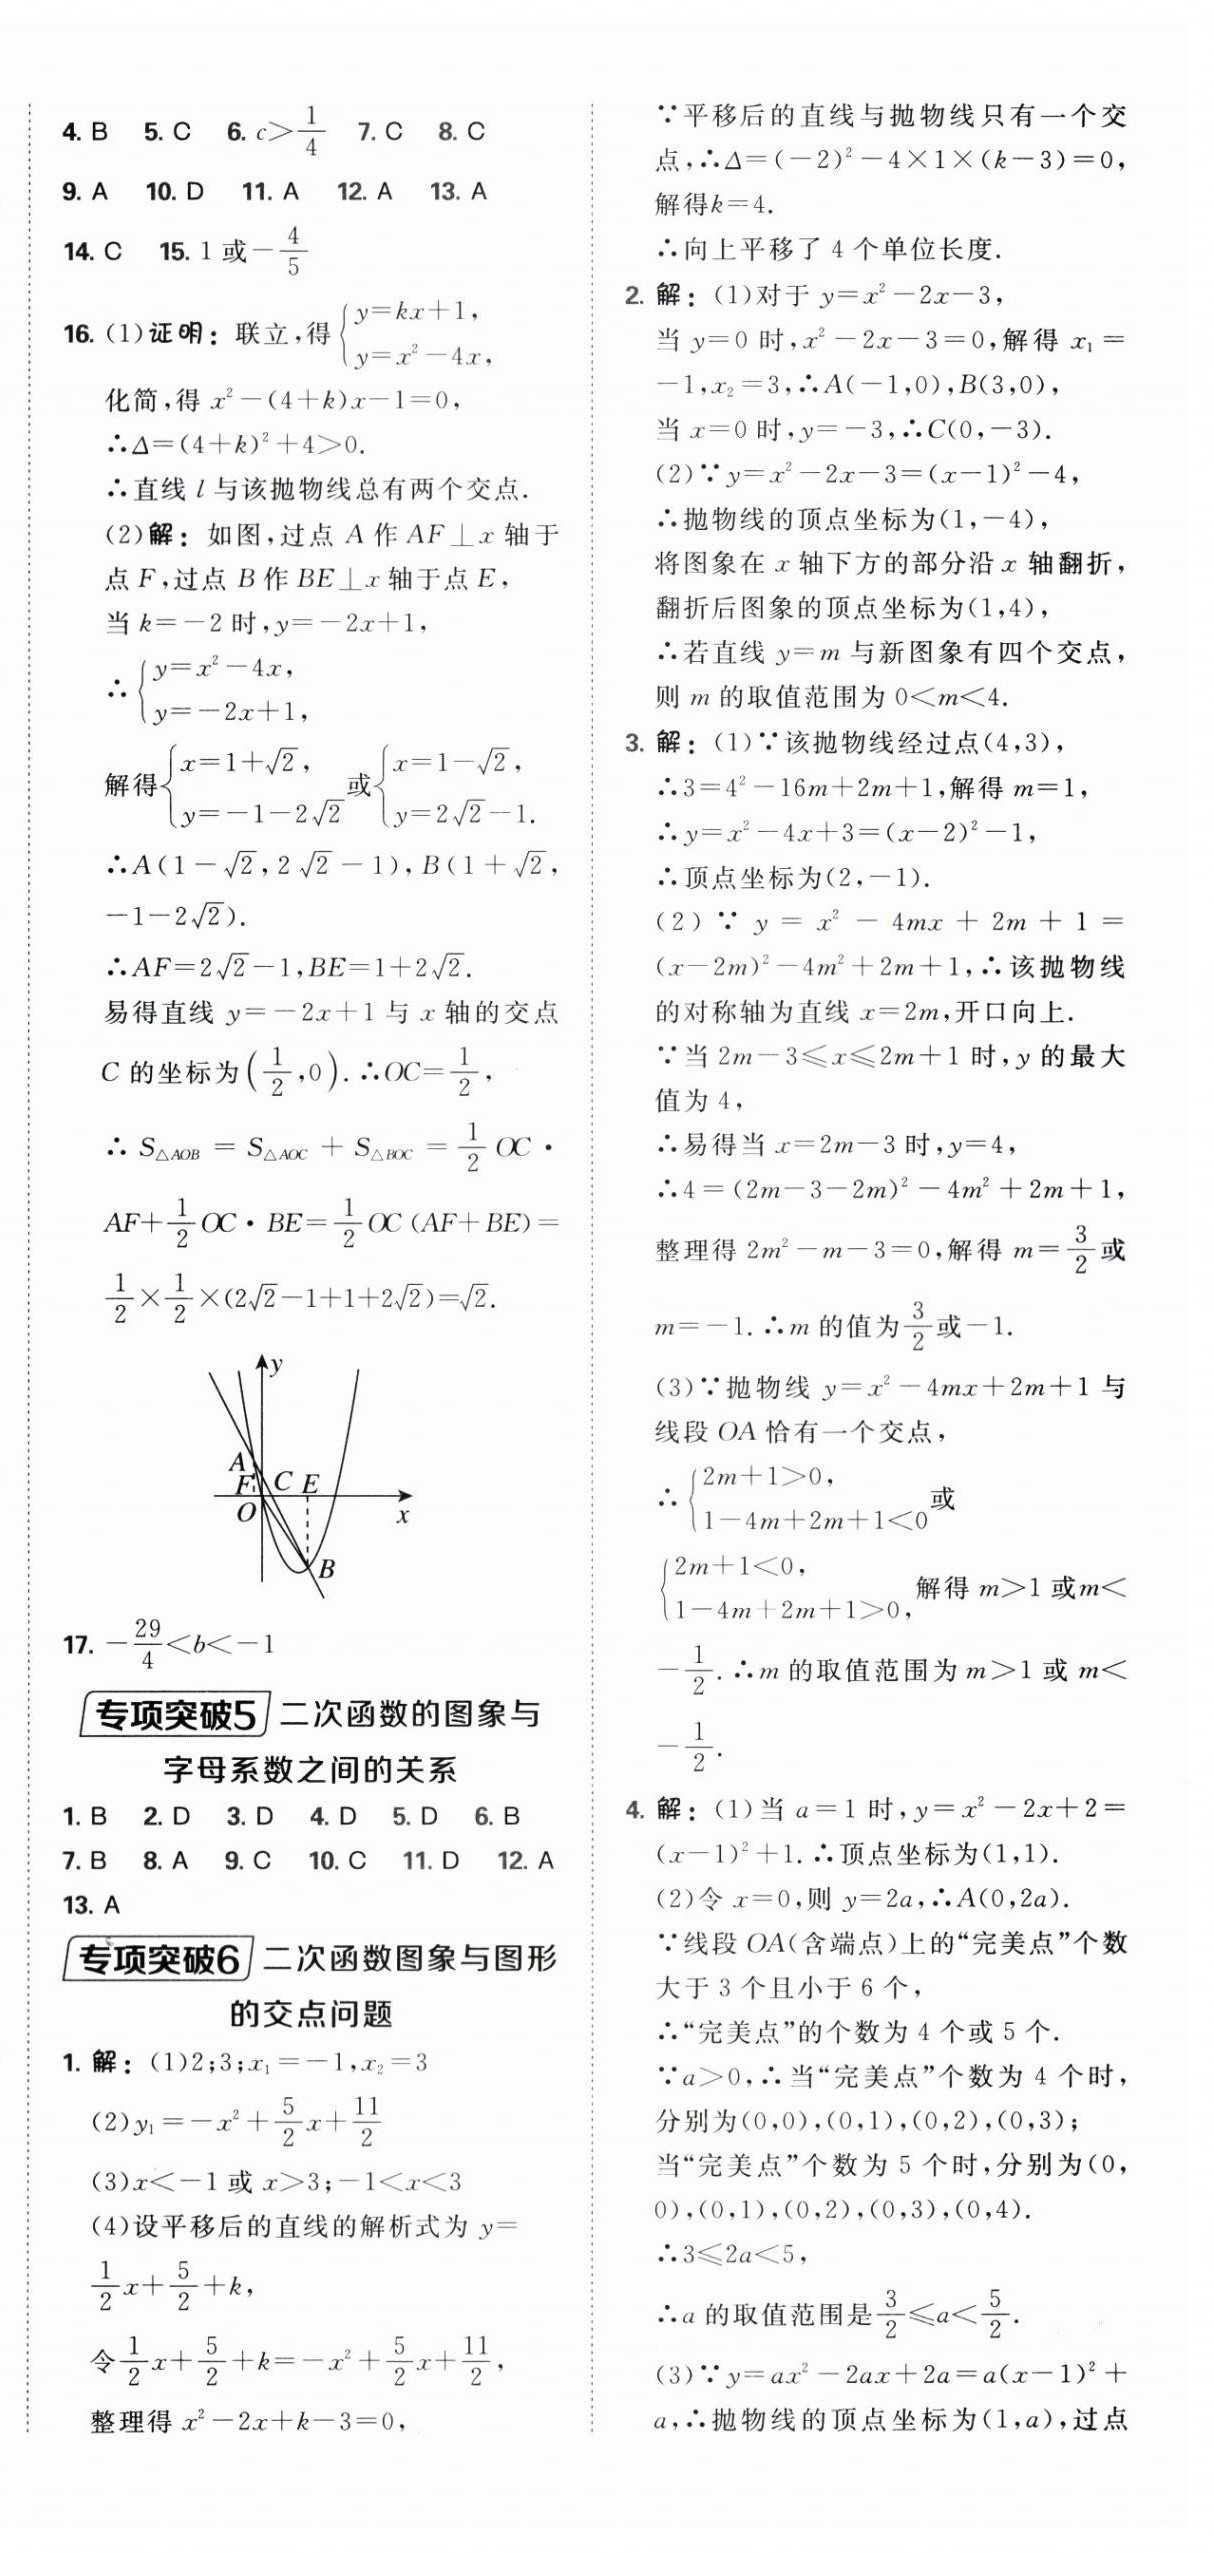 4. B 5. C 6. c>1/4 7. C 8. C
9. A 10. D 11. A 12. A 13. A
14. C 15. 1 或-4/5
16. (1)证明：联立,得{y=kx+1, y=x²-4x,
化简,得 x²-(4+k)x-1=0,
∴Δ=(4+k)²+4>0.
∴直线 l 与该抛物线总有两个交点.
(2)解：如图,过点 A 作 AF⊥x 轴于
点 F,过点 B 作 BE⊥x 轴于点 E,
当 k=-2 时,y=-2x+1,
∴{y=x²-4x, y=-2x+1,
解得{x=1+√2, y=-1-2√2 或{x=1-√2, y=2√2-1.
∴A(1-√2,2√2-1),B(1+√2,
-1-2√2).
∴AF=2√2-1,BE=1+2√2.
易得直线 y=-2x+1 与 x 轴的交点
C 的坐标为(1/2,0).∴OC=1/2,
∴S△AOB=S△AOC+S△BOC=1/2 OC·
AF+1/2 OC·BE=1/2 OC(AF+BE)=
1/2×1/2×(2√2-1+1+2√2)=√2.
y
A
F C E
O x
B
17. -29/4<b<-1
专项突破5 二次函数的图象与
字母系数之间的关系
1. B 2. D 3. D 4. D 5. D 6. B
7. B 8. A 9. C 10. C 11. D 12. A
13. A
专项突破6 二次函数图象与图形
的交点问题
1. 解：(1)2;3;x₁=-1,x₂=3
(2)y₁=-x²+5/2x+11/2
(3)x<-1 或 x>3;-1<x<3
(4)设平移后的直线的解析式为 y=
1/2x+5/2+k,
令1/2x+5/2+k=-x²+5/2x+11/2,
整理得 x²-2x+k-3=0,
∵平移后的直线与抛物线只有一个交
点,∴Δ=(-2)²-4×1×(k-3)=0,
解得k=4.
∴向上平移了 4 个单位长度.
2. 解：(1)对于 y=x²-2x-3,
当 y=0 时,x²-2x-3=0,解得 x₁=
-1,x₂=3,∴A(-1,0),B(3,0),
当 x=0 时,y=-3,∴C(0,-3).
(2)∵y=x²-2x-3=(x-1)²-4,
∴抛物线的顶点坐标为(1,-4),
将图象在 x 轴下方的部分沿 x 轴翻折,
翻折后图象的顶点坐标为(1,4),
∴若直线 y=m 与新图象有四个交点,
则 m 的取值范围为 0<m<4.
3. 解：(1)∵该抛物线经过点(4,3),
∴3=4²-16m+2m+1,解得 m=1,
∴y=x²-4x+3=(x-2)²-1,
∴顶点坐标为(2,-1).
(2)∵y=x²-4mx+2m+1=
(x-2m)²-4m²+2m+1,∴该抛物线
的对称轴为直线 x=2m,开口向上.
∵当 2m-3≤x≤2m+1 时,y 的最大
值为 4,
∴易得当 x=2m-3 时,y=4,
∴4=(2m-3-2m)²-4m²+2m+1,
整理得 2m²-m-3=0,解得 m=3/2或
m=-1.∴m 的值为3/2或-1.
(3)∵抛物线 y=x²-4mx+2m+1 与
线段 OA 恰有一个交点,
∴{2m+1>0, 1-4m+2m+1<0 或
{2m+1<0, 1-4m+2m+1>0, 解得 m>1 或m<
-1/2.∴m 的取值范围为 m>1 或 m<
-1/2.
4. 解：(1)当 a=1 时,y=x²-2x+2=
(x-1)²+1.∴顶点坐标为(1,1).
(2)令 x=0,则 y=2a,∴A(0,2a).
∵线段 OA(含端点)上的“完美点”个数
大于 3 个且小于 6 个,
∴“完美点”的个数为 4 个或 5 个.
∵a>0,∴当“完美点”个数为 4 个时,
分别为(0,0),(0,1),(0,2),(0,3);
当“完美点”个数为 5 个时,分别为(0,
0),(0,1),(0,2),(0,3),(0,4).
∴3≤2a<5,
∴a 的取值范围是3/2≤a<5/2.
(3)∵y=ax²-2ax+2a=a(x-1)²+
a,∴抛物线的顶点坐标为(1,a),过点